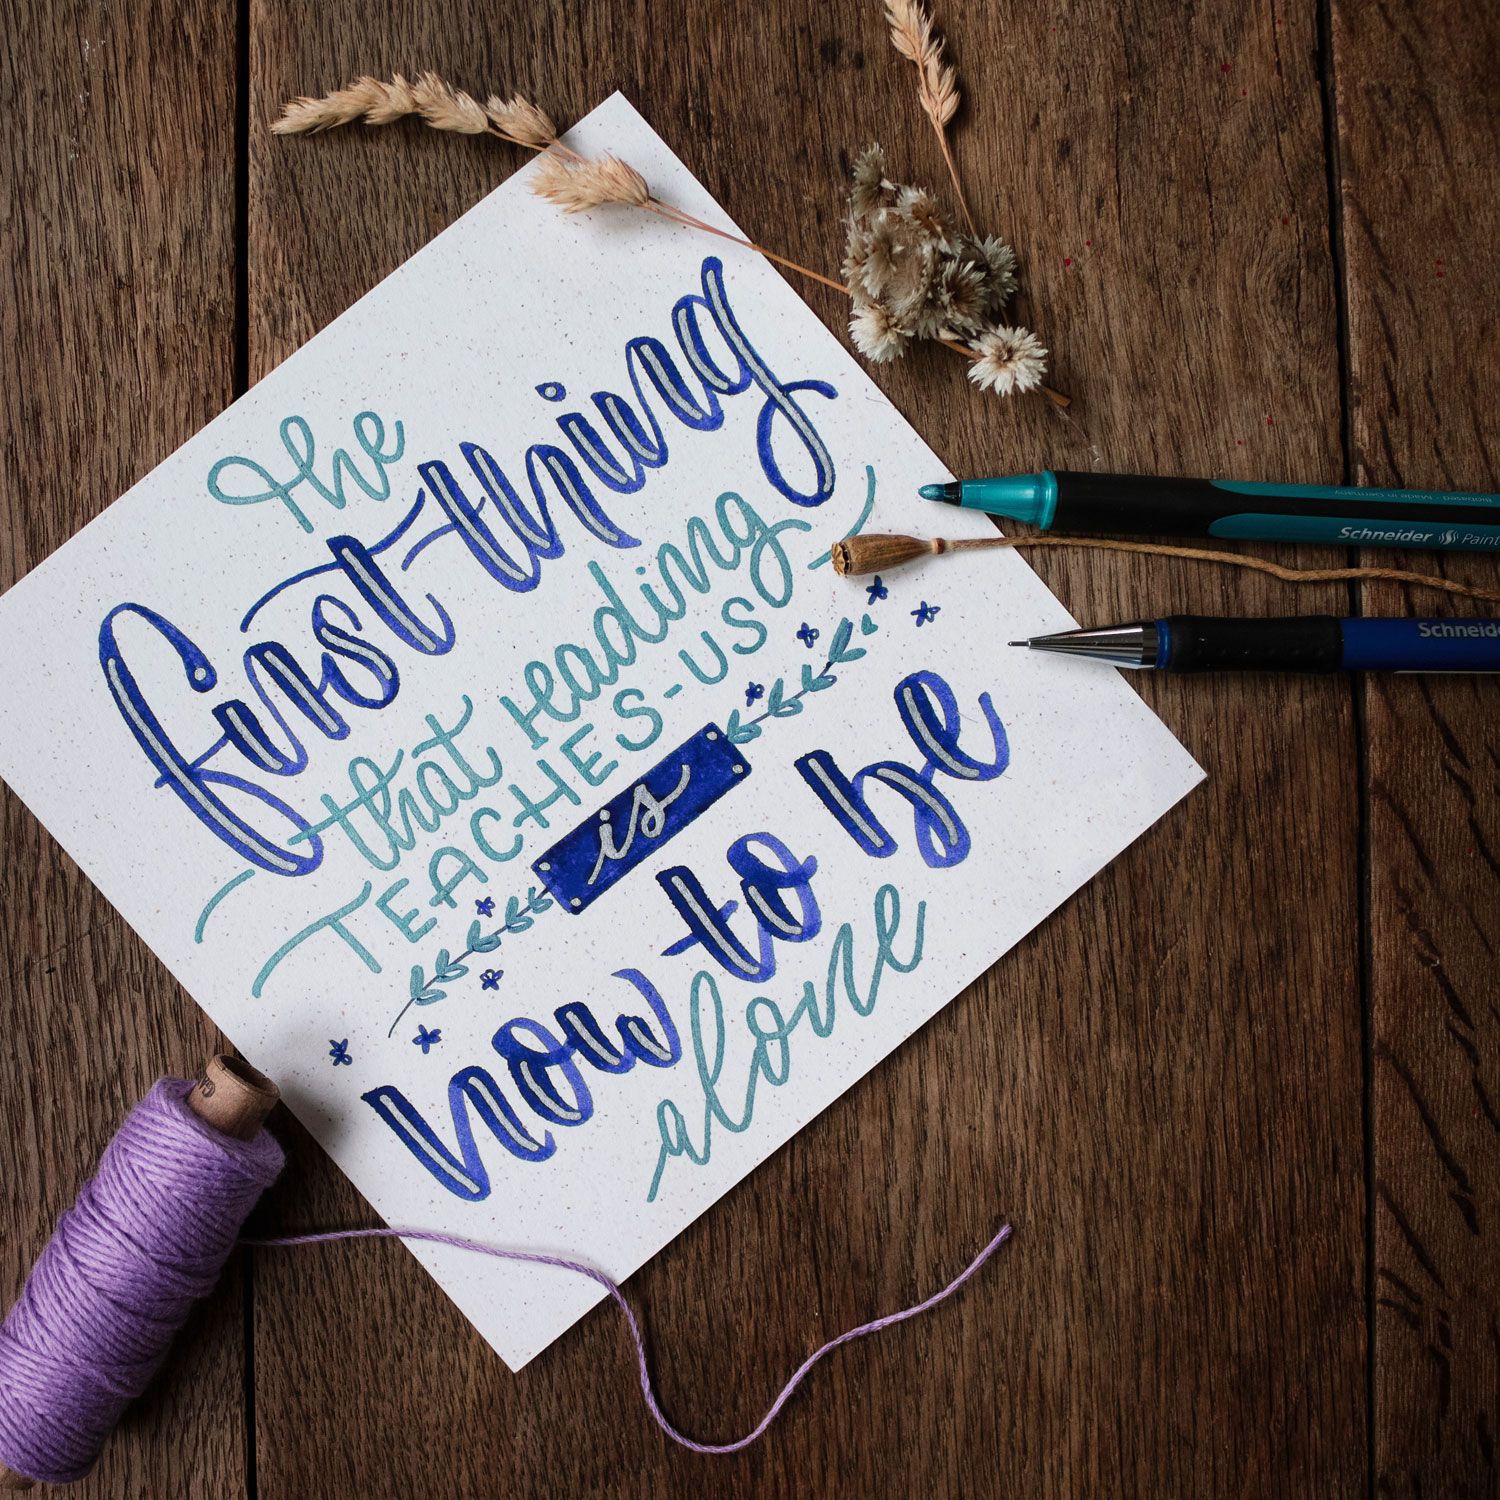 the
first thing
that reading
TEACHES-US
is
how to be
alone
Schneider Paint
Made in Germany
Schneide